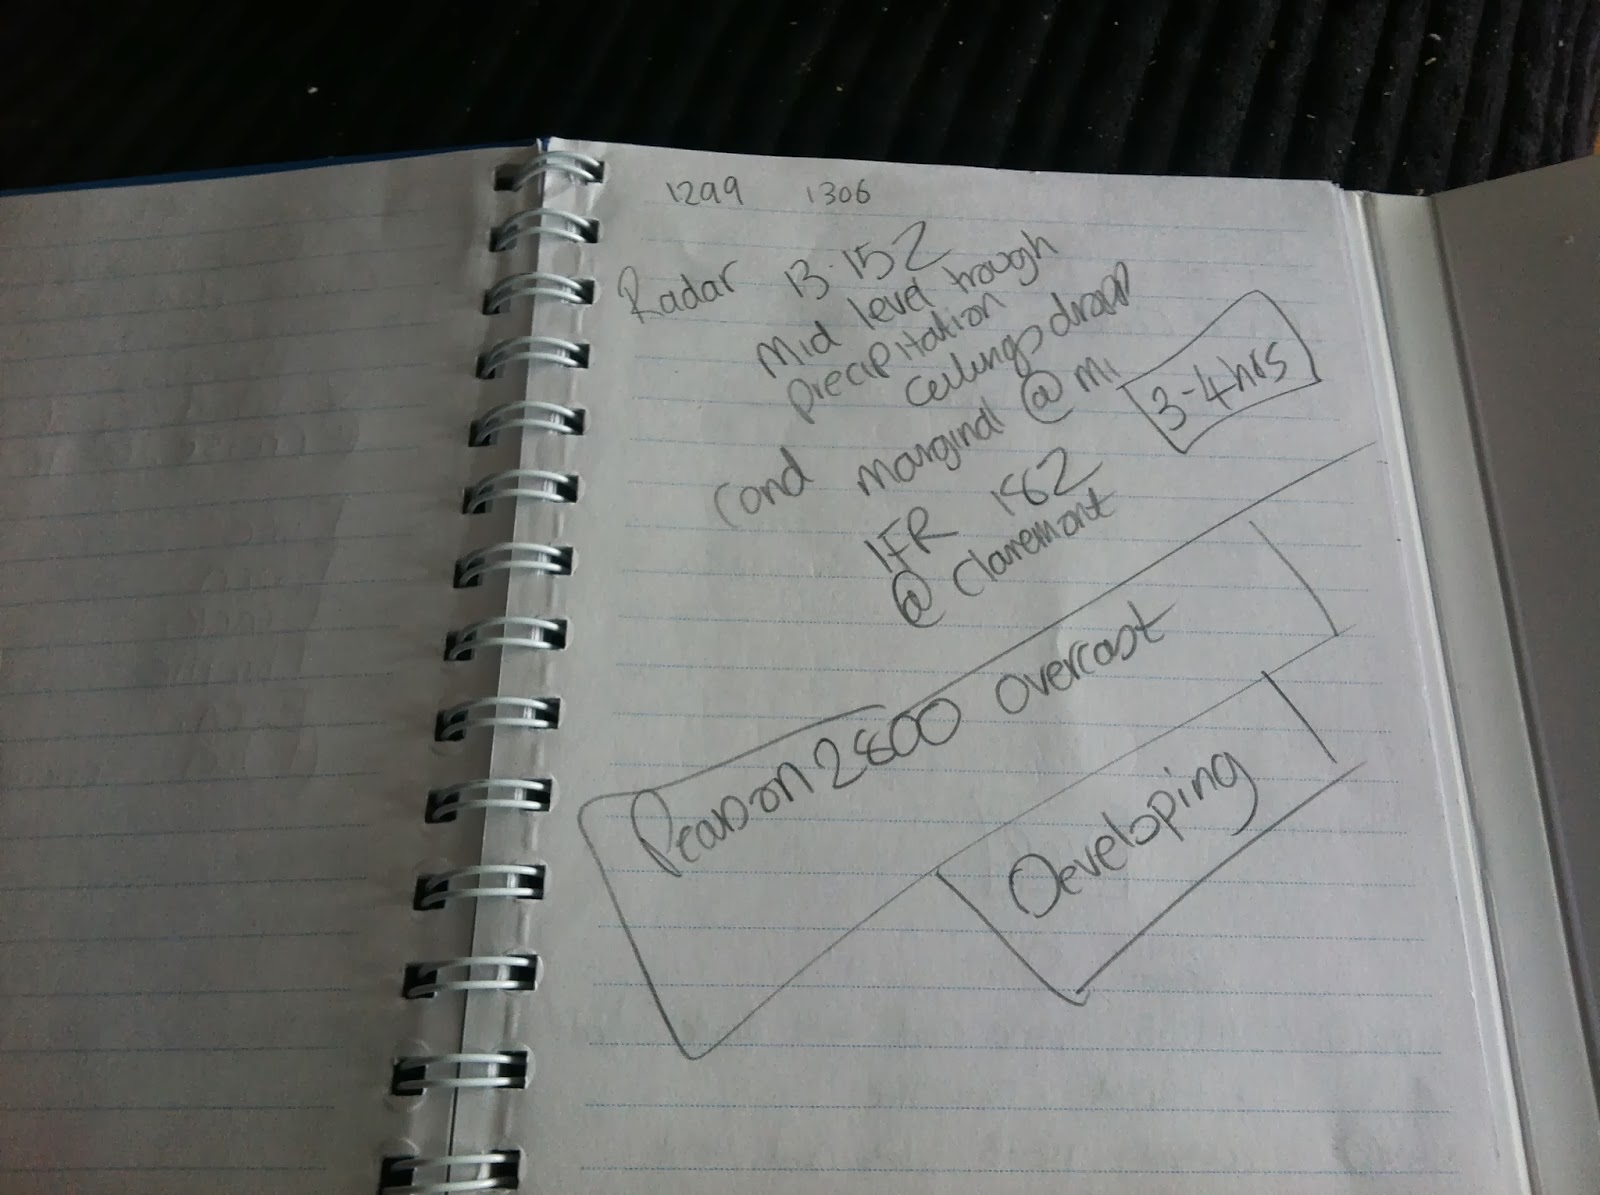 1299 1306
Radar 13.15Z
Mid level trough
precipitation
ceilings dropp
Cond marginal @ MI
3-4hrs
IFR 18Z
@ Claremont
Pearson 2800 overcast
Developing